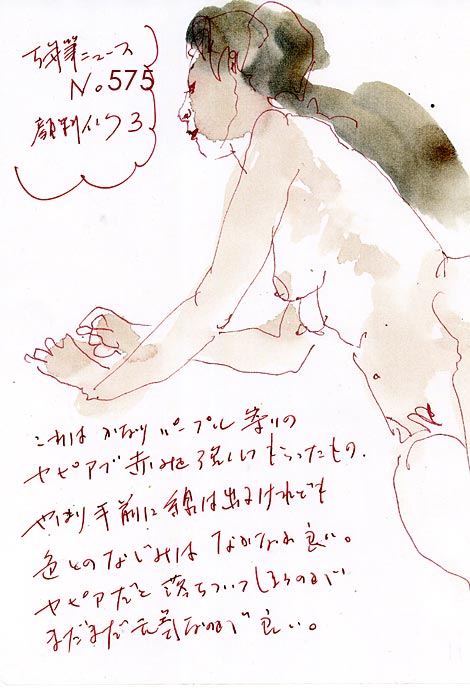 万年筆ニュース
No.575
顔料インク3
これは かなり パープル 寄りの
セピアで 赤みを 強くして もらったもの.
やはり 手前に 線は出るけれども
色とのなじみは なかなか 良い。
セピアだと 落ちついてしまうのが
まだまだ元気なので 良い。